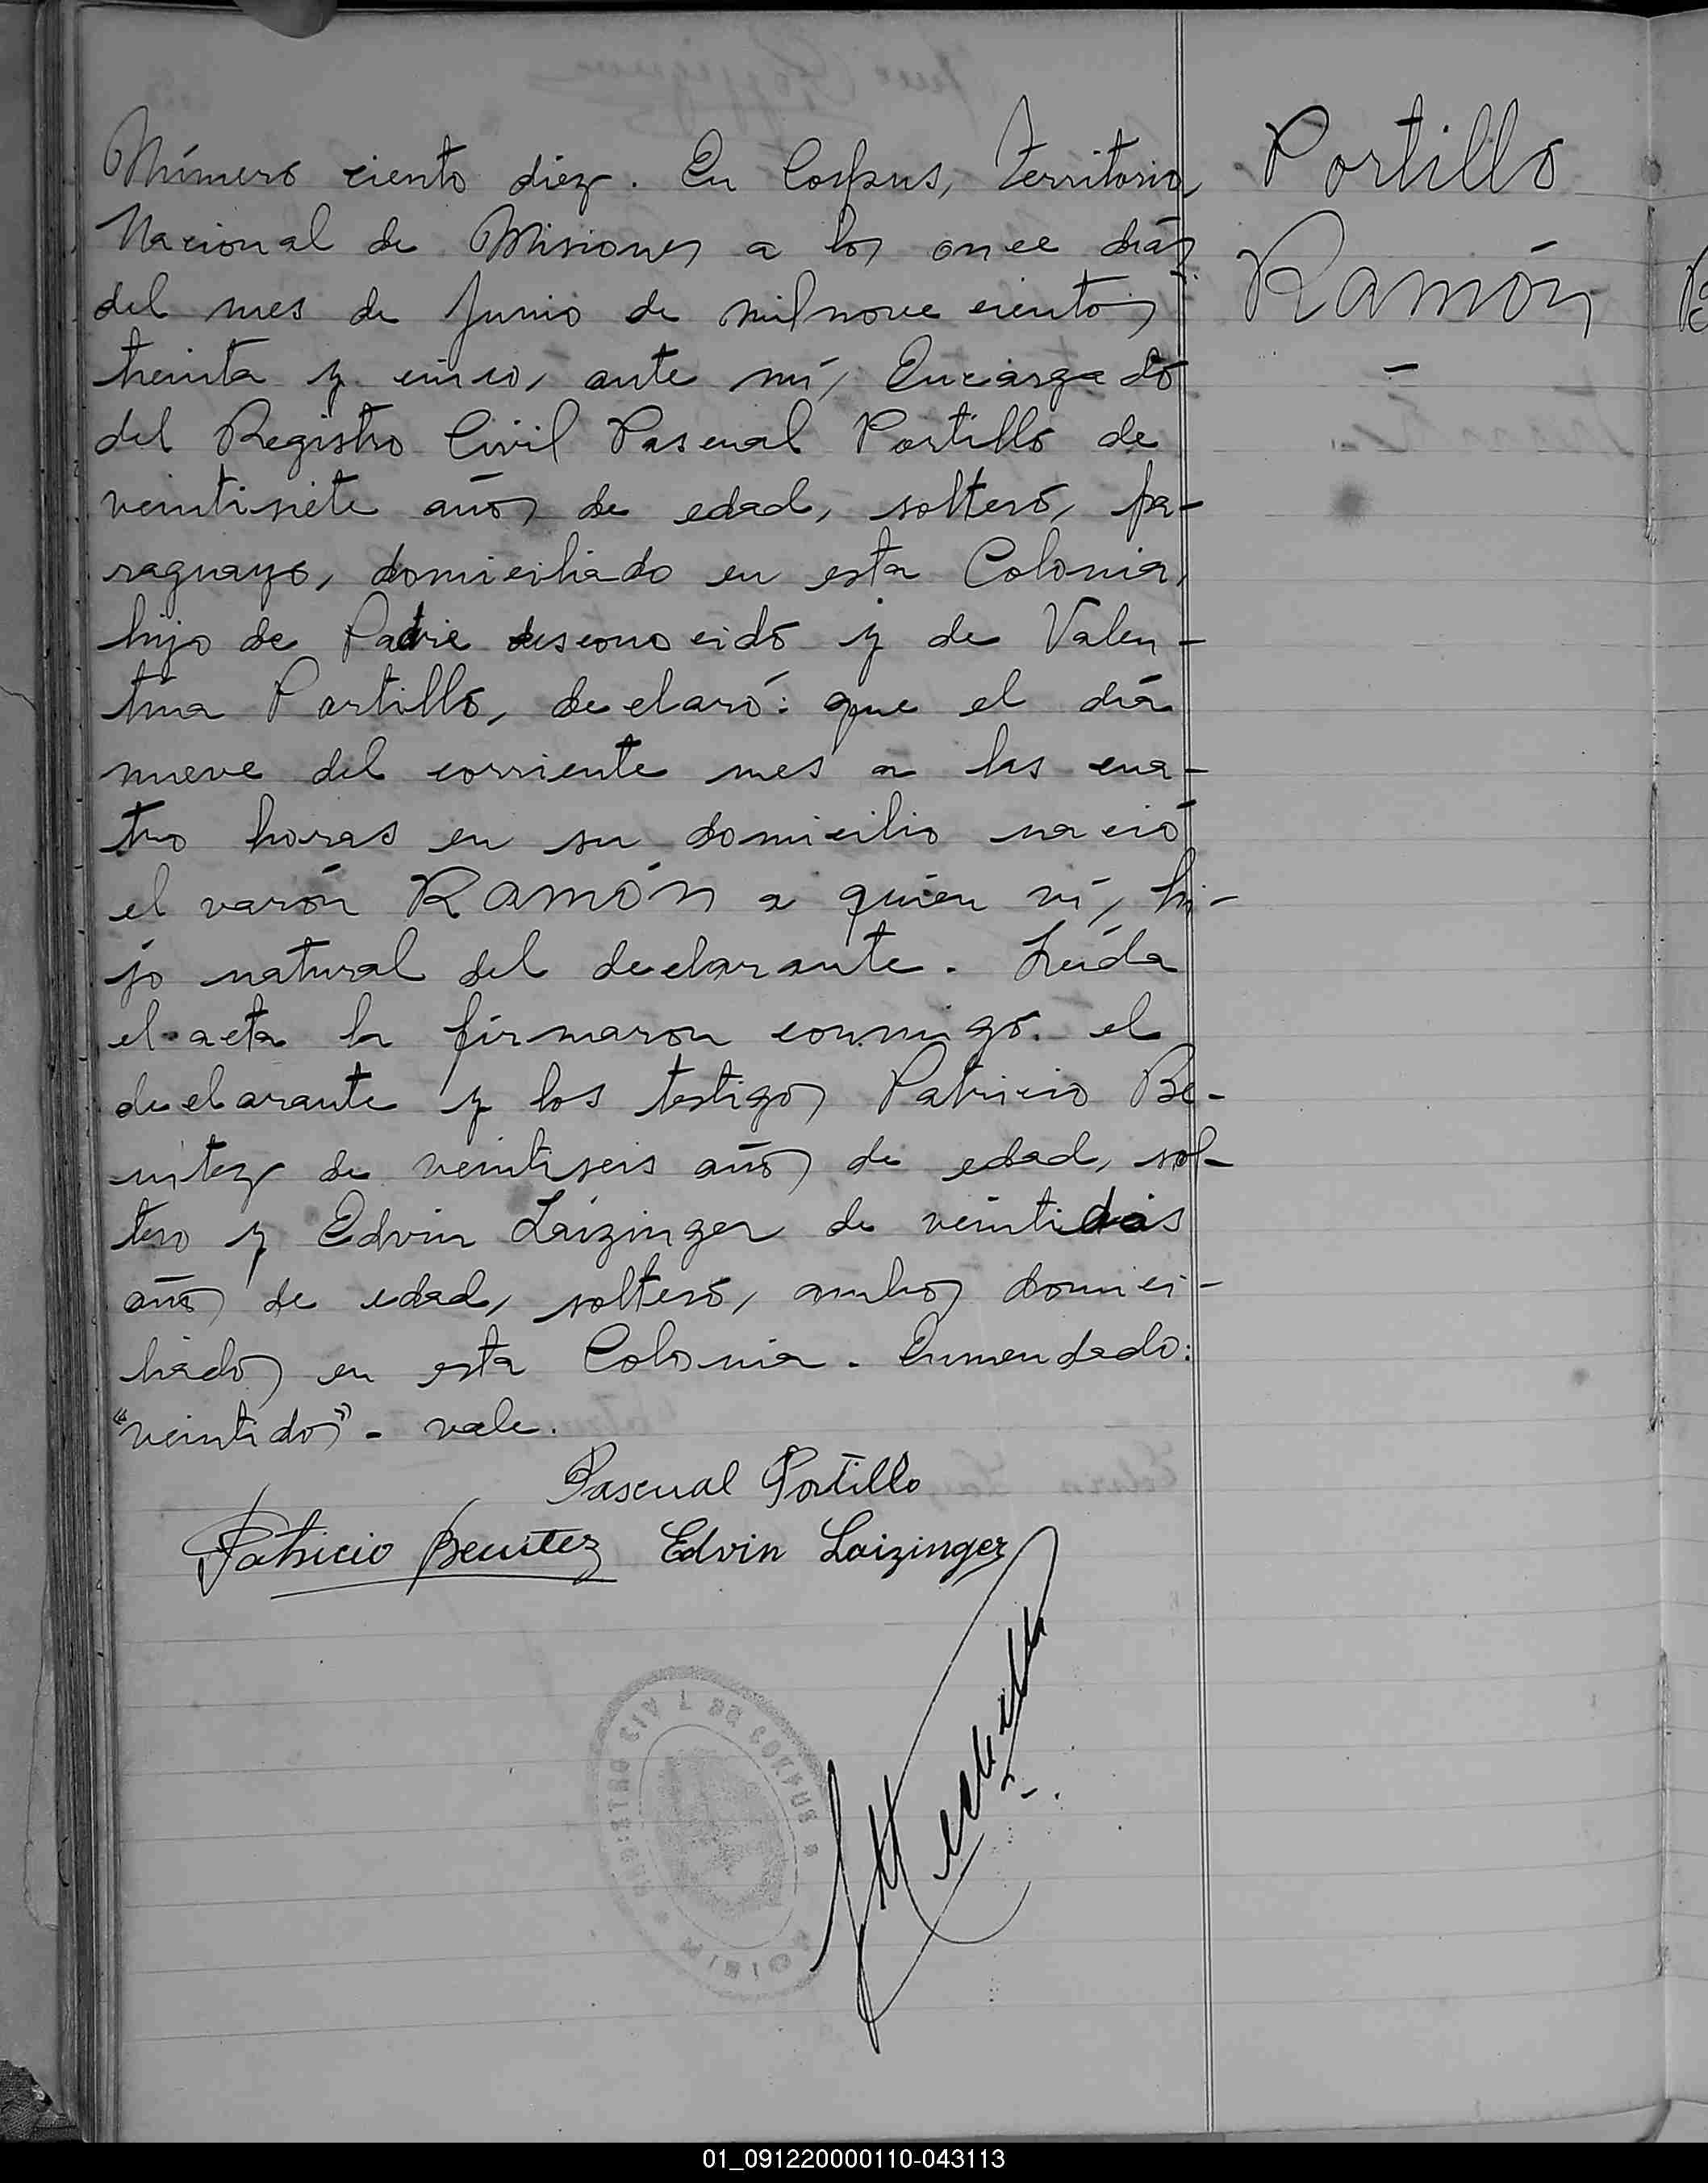 Número ciento diez. En Corpus, Territorio
Nacional de Misiones a los once días
del mes de Junio de mil nove cientos
treinta y cinco, ante mí, Encargado
del Registro Civil Pascual Portillo de
veintisiete años de edad, soltero, pa-
raguayo, domiciliado en esta Colonia,
hijo de Padre desconocido y de Valen-
tina Portillo, declaró: que el día
nueve del corriente mes a las cua-
tro horas en su domicilio nació
el varón RAMÓN a quien vi, hi-
jo natural del declarante. Leída
el acta la firmaron conmigo el
declarante y los testigos Patricio Be-
nitez de veintiseis años de edad, sol-
tero y Edvin Laizinger de veintidos
años de edad, soltero, ambos domici-
liados en esta Colonia. Enmendado:
"veintidos" - vale.
Pascual Portillo
Patricio Benitez Edvin Laizinger
Portillo
Ramón
REGISTRO CIVIL DE CORPUS
01_091220000110-043113